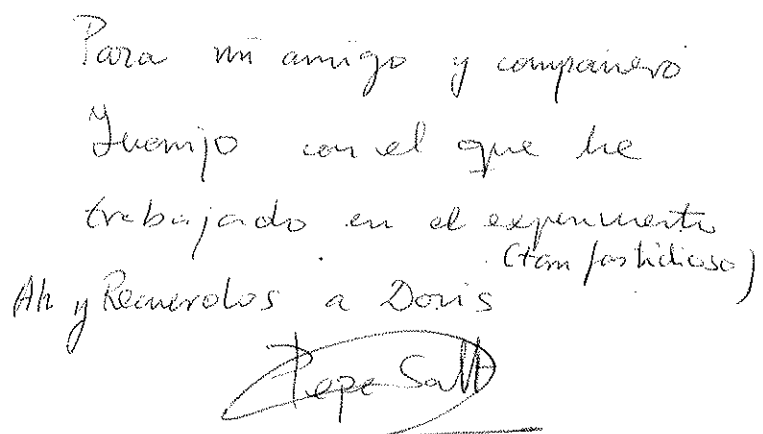 Para mi amigo y compañero
Juanjo con el que he
trabajado en el experimento
(tan fastidioso)
Ah y Recuerdos a Doris
Pepe Salt